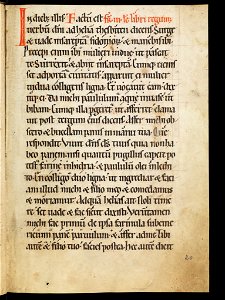 In dieb; illis. Factũ est
uerbũm dñi ad heliã thesbiten dicens. Surge
& uade in sarepta sidonioꝝ. & manebis ibi.
precepi enim ibi mulieri uidue ut pascat
te. Surrexit & abiit in sarepta. Cumq; uenis
set ad portã ciuitatis. apparuit ei mulier
uidua colligens ligna. & uocauit eam dixit
q; ei. Da michi paululũ aquę in uase ut
bibam. Cumq; illa pergeret ut afferret. clama
uit post tergum eius dicens. Affer michi ob
secro & bucellam panis in manu tua. Que
respondit. Viuit dñs ds tuus quia non ha
beo panem. nisi quantũ pugillus capere po
test farine in hidria. & paululũ olei in lechi
to. En colligo duo ligna. ut ingrediar & faci
am illud michi & filio meo. & comedamus
& moriamur. Ad quã helias ait. Noli time
re. sed uade & fac sicut dixisti. Verũtamen
michi fac primũ de ipsa farinula subcine
ricium panẽ paruulum. & affer.
autẽ & filio tuo facies postea. hec autẽ dicit
20